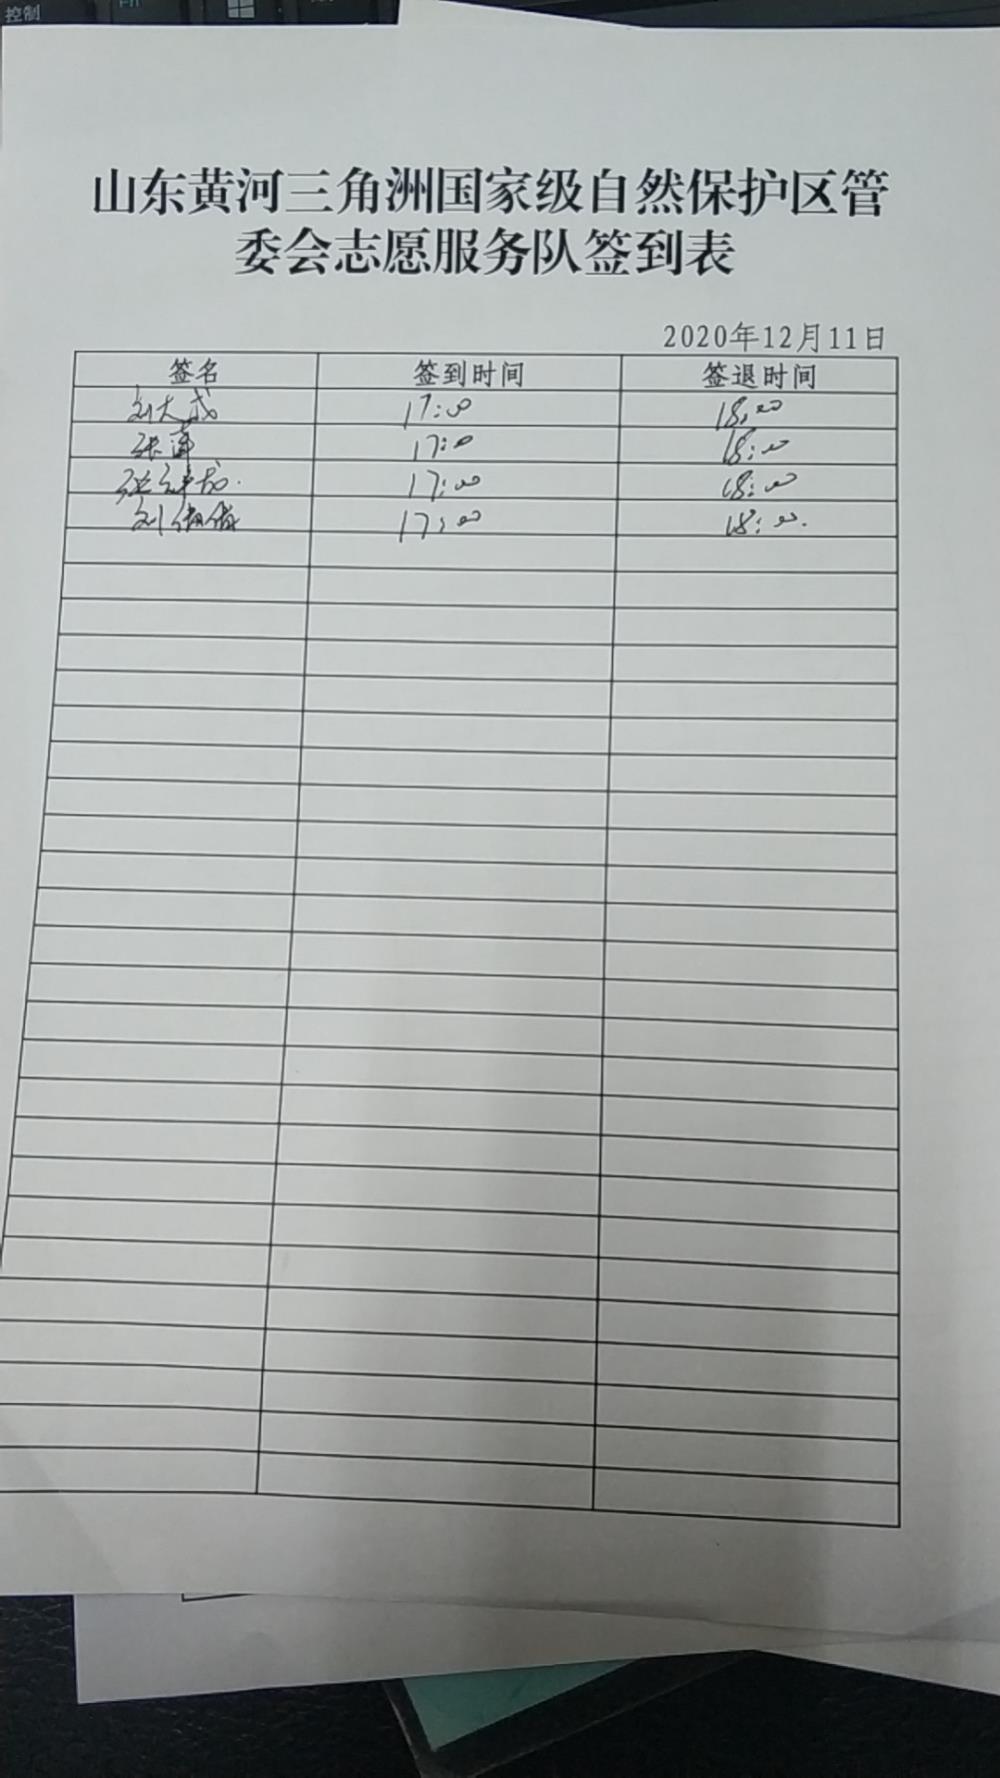 控制
Fn
山东黄河三角洲国家级自然保护区管
委会志愿服务队签到表
2020年12月11日
签名 签到时间 签退时间
刘大成 17:00 18:00
张 17:00 18:00
张 17:00 18:00
刘倩倩 17:00 18:00.